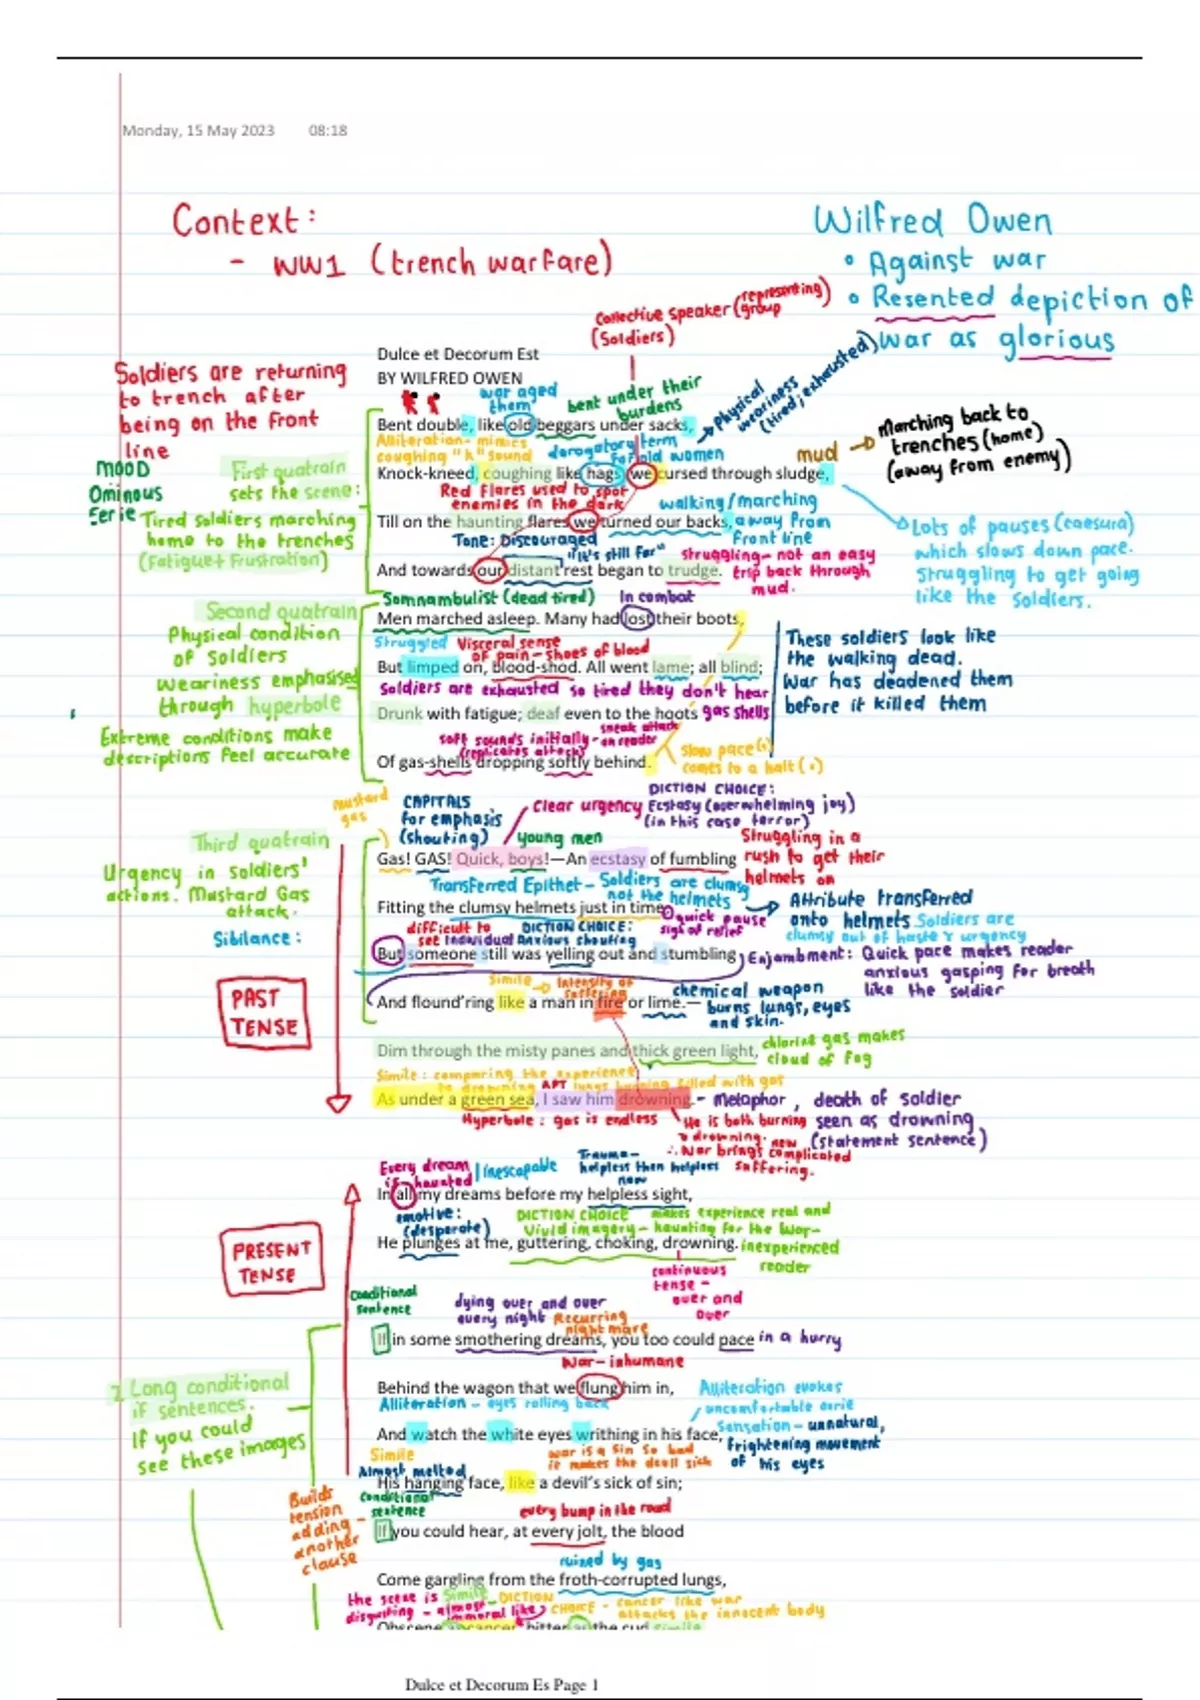 Monday, 15 May 2023 08:18
Context:
- WW1 (trench warfare)
Wilfred Owen
• Against war
• Resented depiction of
war as glorious
Collective speaker (representing group
(Soldiers)
Dulce et Decorum Est
BY WILFRED OWEN
Soldiers are returning
to trench after
being on the front
line
war aged
them
bent under their
burdens
Physical
weariness
(tired; exhausted)
Bent double, like old beggars under sacks,
Alliteration- mimics
coughing "k" sound
derogatory term
for old women
mud → Marching back to
trenches (home)
(away from enemy)
Knock-kneed, coughing like hags, we cursed through sludge,
MOOD
Ominous
Eerie
First quatrain
sets the scene:
Tired soldiers marching
home to the trenches
(Fatigue+ Frustration)
Red flares used to spot
enemies in the dark
walking/marching
Till on the haunting flares we turned our backs, away from
front line
Tone: Discouraged
"it's still far"
Lots of pauses (caesura)
which slows down pace.
Struggling to get going
like the soldiers.
struggling- not an easy
trip back through
mud.
And towards our distant rest began to trudge.
Somnambulist (dead tired)
In combat
Men marched asleep. Many had lost their boots,
Second quatrain
Physical condition
of Soldiers
Weariness emphasised
through hyperbole
Extreme conditions make
descriptions feel accurate
Struggled
Visceral sense
of pain - shoes of blood
But limped on, blood-shod. All went lame; all blind;
These soldiers look like
the walking dead.
War has deadened them
before it killed them
Soldiers are exhausted so tired they don't hear
Drunk with fatigue; deaf even to the hoots gas shells
soft sounds initially-
(replicates attack)
sneak attack
on reader
Of gas-shells dropping softly behind.
Slow pace(,)
comes to a halt (.)
mustard
gas
CAPITALS
for emphasis
(shouting)
clear urgency
young men
DICTION CHOICE:
Ecstasy (overwhelming joy)
(in this case terror)
Third quatrain
Urgency in soldiers'
actions. Mustard Gas
attack.
Sibilance:
Gas! GAS! Quick, boys!—An ecstasy of fumbling
Struggling in a
rush to get their
helmets on
Transferred Epithet - Soldiers are clumsy
not the helmets
Attribute transferred
onto helmets Soldiers are
clumsy out of haste & urgency
Fitting the clumsy helmets just in time,
quick pause
sigh of relief
difficult to
see Individual
DICTION CHOICE:
Anxious shouting
But someone still was yelling out and stumbling
Enjambment: Quick pace makes reader
anxious gasping for breath
like the soldier
Simile → Intensity of
suffering
And flound'ring like a man in fire or lime.—
chemical weapon
burns lungs, eyes
and skin.
PAST
TENSE
Dim through the misty panes and thick green light,
chlorine gas makes
cloud of fog
Simile: comparing the experience
to drowning APT lungs burning filled with gas
As under a green sea, I saw him drowning.
- Metaphor, death of soldier
seen as drowning
(statement sentence)
Hyperbole: gas is endless
He is both burning
& drowning.
∴ War brings complicated
suffering.
Every dream
is haunted
inescapable
Trauma-
helpless then helpless
now
In all my dreams before my helpless sight,
emotive:
(desperate)
DICTION CHOICE makes experience real and
Vivid imagery - haunting for the war-
inexperienced
reader
He plunges at me, guttering, choking, drowning.
PRESENT
TENSE
continuous
tense -
over and
over
Conditional
sentence
dying over and over
every night Recurring
nightmare
If in some smothering dreams, you too could pace in a hurry
War- inhumane
Behind the wagon that we flung him in,
2 Long conditional
if sentences.
If you could
see these images
Alliteration - eyes rolling back
Alliteration evokes
uncomfortable eerie
Sensation - unnatural,
frightening movement
of his eyes
And watch the white eyes writhing in his face,
Simile
war is a sin so bad
it makes the devil sick
Almost melted
His hanging face, like a devil's sick of sin;
Builds
tension
adding
another
clause
Conditional
sentence
every bump in the road
If you could hear, at every jolt, the blood
ruined by gas
Come gargling from the froth-corrupted lungs,
the scene is
disgusting - almost
immoral like
Simile
DICTION
CHOICE - cancer like war
attacks the innocent body
Obscene as cancer, bitter as the cud simile
Dulce et Decorum Es Page 1